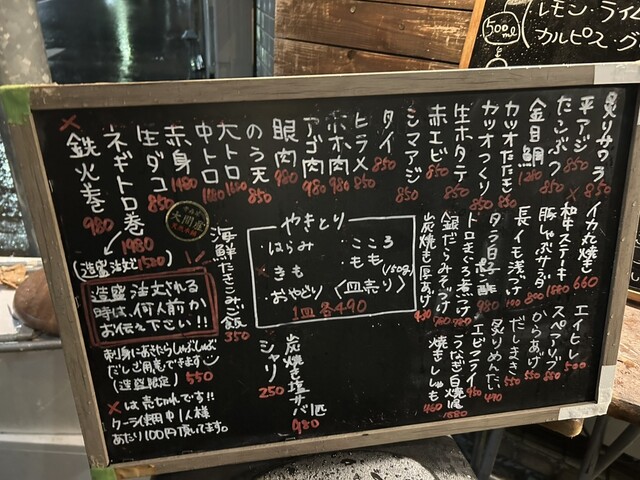 500ml
レモン・ライ
カルピス グ
炙りサワラ 850
平アジ 850
たこぶつ ×
金目鯛 1280
カツオたたき 850
カツオつくり 850
生ホタテ 850
赤エビ 850
シマアジ 850
タイ 850
ヒラメ 850
ホホ肉 980
アゴ肉 980
眼肉 980
のう天 850
大トロ
中トロ
赤身 1480
生ダコ 850
ネギトロ巻 1980
(造盛注文 1500)
× 鉄火巻 980
イカ丸焼き 660
和牛ステーキ 1580
豚しゃぶサラダ 850
長イモ浅づけ
タラ白子ポン酢
トロまぐろ煮つけ
銀だらみそづけ
炭焼き厚あげ
エイヒレ 500
スペアリブ 550
からあげ 550
だしまき 550
炙りめんたい 440
エビフライ
うなぎ白焼 1580
焼きししゃも 460
やきとり
・はらみ
× きも
・おやどり
・こころ
・もも (150g)
〈皿売り〉
1皿 各490
海鮮たきこみご飯 350
シャリ 250
炭焼き塩サバ 1匹 980
造盛 注文される
時は、何人前か
お伝え下さい!!
刺身にあきたらしゃぶしゃぶ
だしご用意できます
(造盛限定) 550
×は売ちれです!!
クーラー使用中1人様
あたり100円頂いてます。